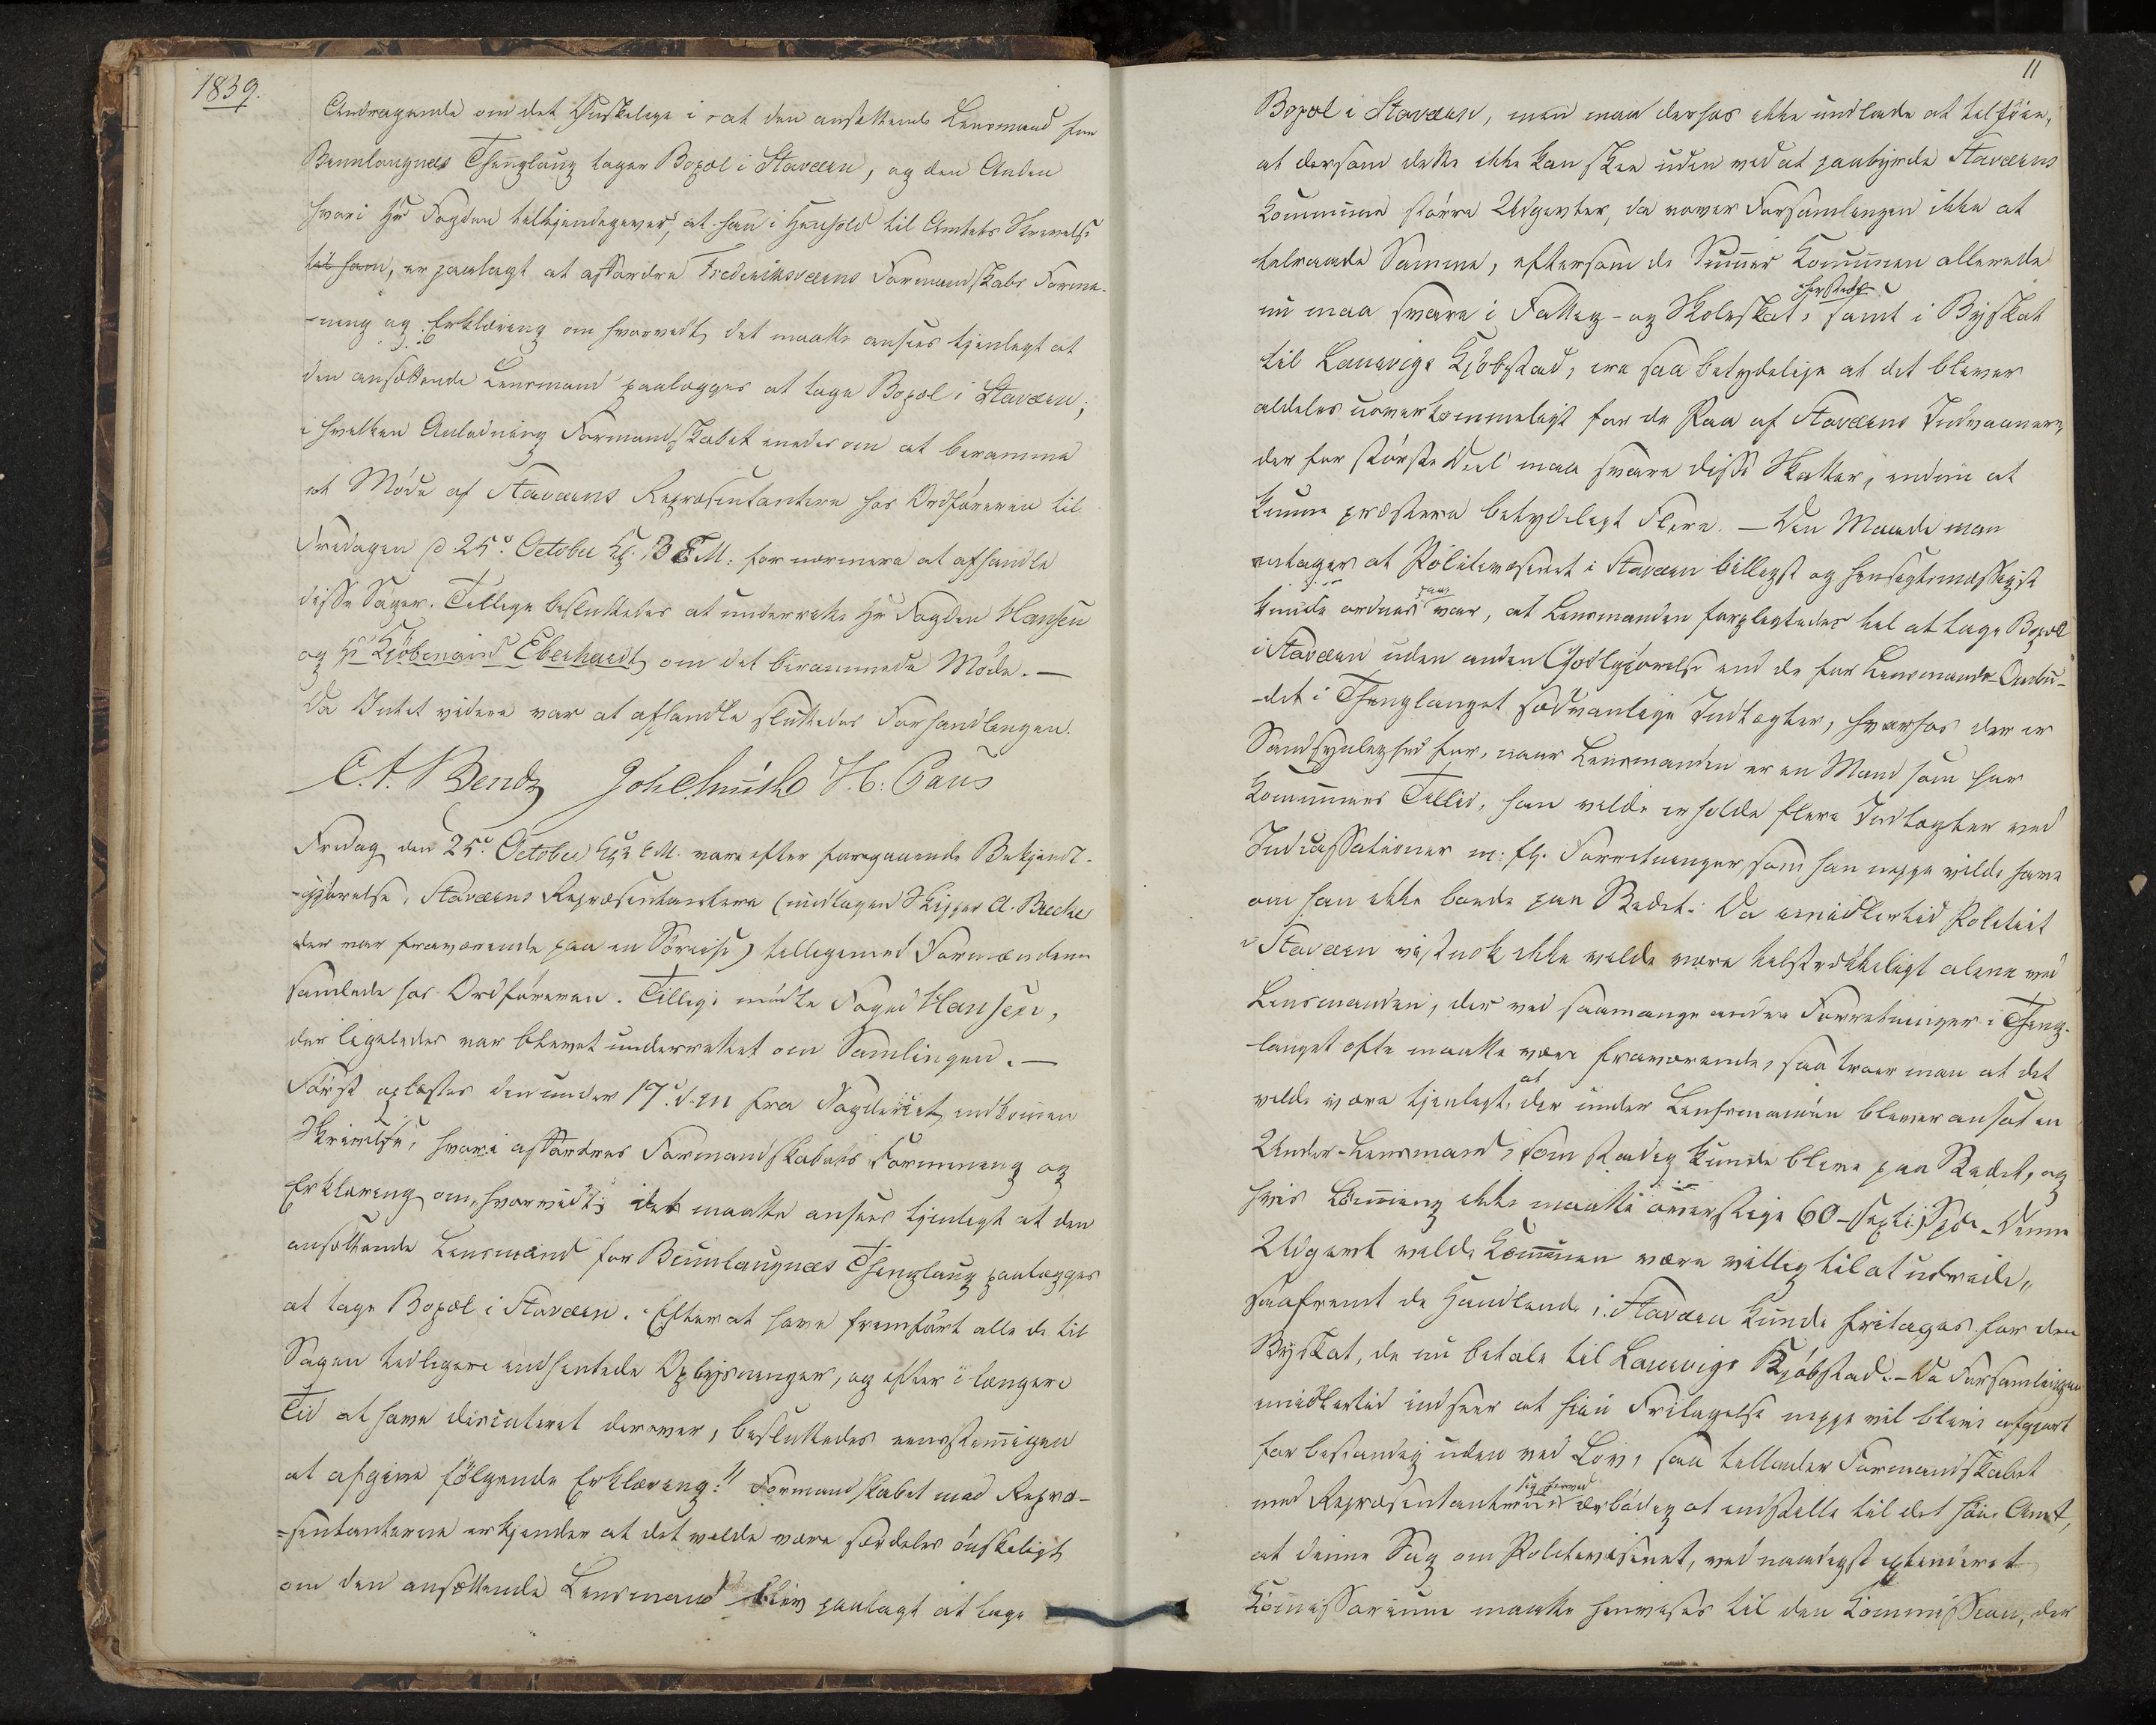 1839.
Andragende om det Ønskelige i at den ansættende Lensmand for
Brunlaugnæs Thinglaug tager Bopæl i Staværn, og den Anden
hvori Hr Fogden tilkjendegiver, at han i Henhold til Amtets Skrivelse
til ham, er paalagt at affordre Frederiksværns Formandskabs Forme-
-ning og Erklæring om hvorvidt det maatte ansees tjenligt at
den ansættende Lensmand paalægges at tage Bopæl i Staværn;
i hvilken Anledning Formandskabet enedes om at beramme
et Møde af Staværns Repræsentantere hos Ordføreren til
Fredagen d 25de October Kl. 3 E.M. for nærmere at afhandle
disse Sager. Tillige besluttedes at underrette Hr Fogden Hansen
og Hr Kjøbmand Eberhardt om det berammede Møde. —
Da Intet videre var at afhandle sluttedes Forhandlingen.
C. A. Bendz Joh Schmidt H. C. Paus
Fredag den 25de October E.M. vare efter foregaaende Bekjendt-
-gjørelse, Staværns Repræsentantere (undtagen Skipper A. Breche
der var fraværende paa en Søreise) tilligemed Formændene
samlede hos Ordføreren. Tillige mødte Foged Hansen,
der ligeledes var blevet underrettet om Samlingen. —
Først oplæstes den under 17de d. M fra Fogderiet indkomne
Skrivelse, hvori affordres Formandskabets Formening og
Erklæring om, hvorvidt det maatte ansees tjenligt at den
ansættende Lensmand for Brunlaugnæs Thinglaug paalægges
at tage Bopæl i Staværn. Efter at have fremført alle de til
Sagen tidligere indhentede Oplysninger, og efter i længere
Tid at have discuteret derover, besluttedes eenstemmigen
at afgive følgende Erklæring: "Formandskabet med Repræ-
=sentanterne erkjender at det vilde være særdeles ønskeligt
om den ansættende Lensmand blev paalagt at tage
11
Bopæl i Staværn, men maa derhos ikke undlade at tilføie,
at dersom dette ikke kan skee uden ved at paabyrde Staværns
Kommune større Udgivter, da vover Forsamlingen ikke at
tilraade Samme, eftersom de Summer Kommunen allerede
nu maa svare i Fattig- og Skoleskat, samt i Byskat
herstedts
til Laurvigs Kjøbstad, ere saa betydelige at det bliver
aldeles uoverkommeligt for de Faa af Staværns Indvaanere,
der for største Deel maa svare disse Skatter, endnu at
kunne præstere betydeligt Flere. — Den Maade man
antager at Politievæsenet i Staværn billigst og hensigtsmæssigst
kunde ordnes paa var, at Lensmanden forpligtedes til at tage Bopæl
i Staværn uden anden Godtgjørelse end de for Lensmands-Ombu-
-det i Thinglauget sædvanlige Indtægter, hvorhos der er
Sandsynlighed for, naar Lensmanden er en Mand som har
Kommunens Tillid, han vilde erholde flere Indtægter ved
Indcassationer m. fl. Forretninger, som han neppe vilde have
om han ikke boede paa Stedet. Da imidlertid Politiet
i Staværn vistnok ikke vilde være tilstrækkeligt alene ved
Lensmanden, der ved saamange andre Forretninger i Thing-
lauget ofte maatte være fraværende, saa troer man at det
vilde være tjenligt, at der under Lensmanden bliver ansat en
Under-Lensmand, som stadig kunde blive paa Stedet, og
hvis Lønning ikke maatte overstige 60 - sexti - Spd. - Denne
Udgivt vilde Kommunen være villig til at udrede,
saafremt de Handlende i Staværn kunde fritages for den
Byskat, de nu betale til Laurvigs Kjøbstad. - Da Forsamlingen
imidlertid indseer at hiin Fritagelse neppe vil blive afgjort
for bestandig uden ved Lov, saa tillader Formandskabet
med Repræsentanterne sig herved ærbødig at indstille til det høie Amt,
at denne Sag om Politievæsenet, ved naadigst extenderet
Kommissorium maatte henvises til den Kommission, der